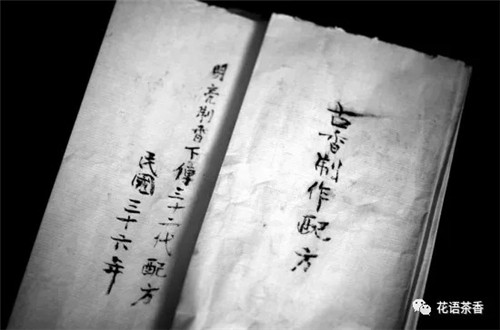 古香制作配方
明亮制香下傳三十二代配方
民國三十六年
花语茶香